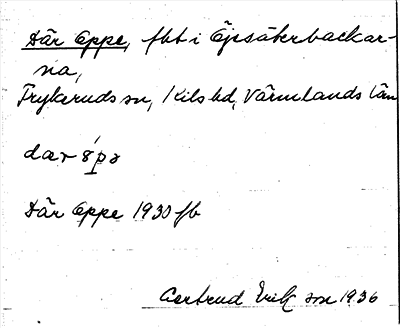 Där Oppe, fbt i Öjesäterbackar-
na,
Frykerud sn, Kils hd, Värmlands län
dær ȯpə
Där Oppe 1930 fb
Gertrud Erik sn 1936